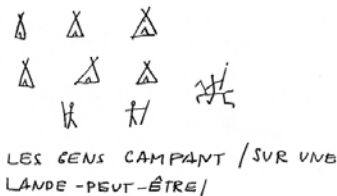 LES GENS CAMPANT / SUR UNE
LANDE - PEUT-ÊTRE /